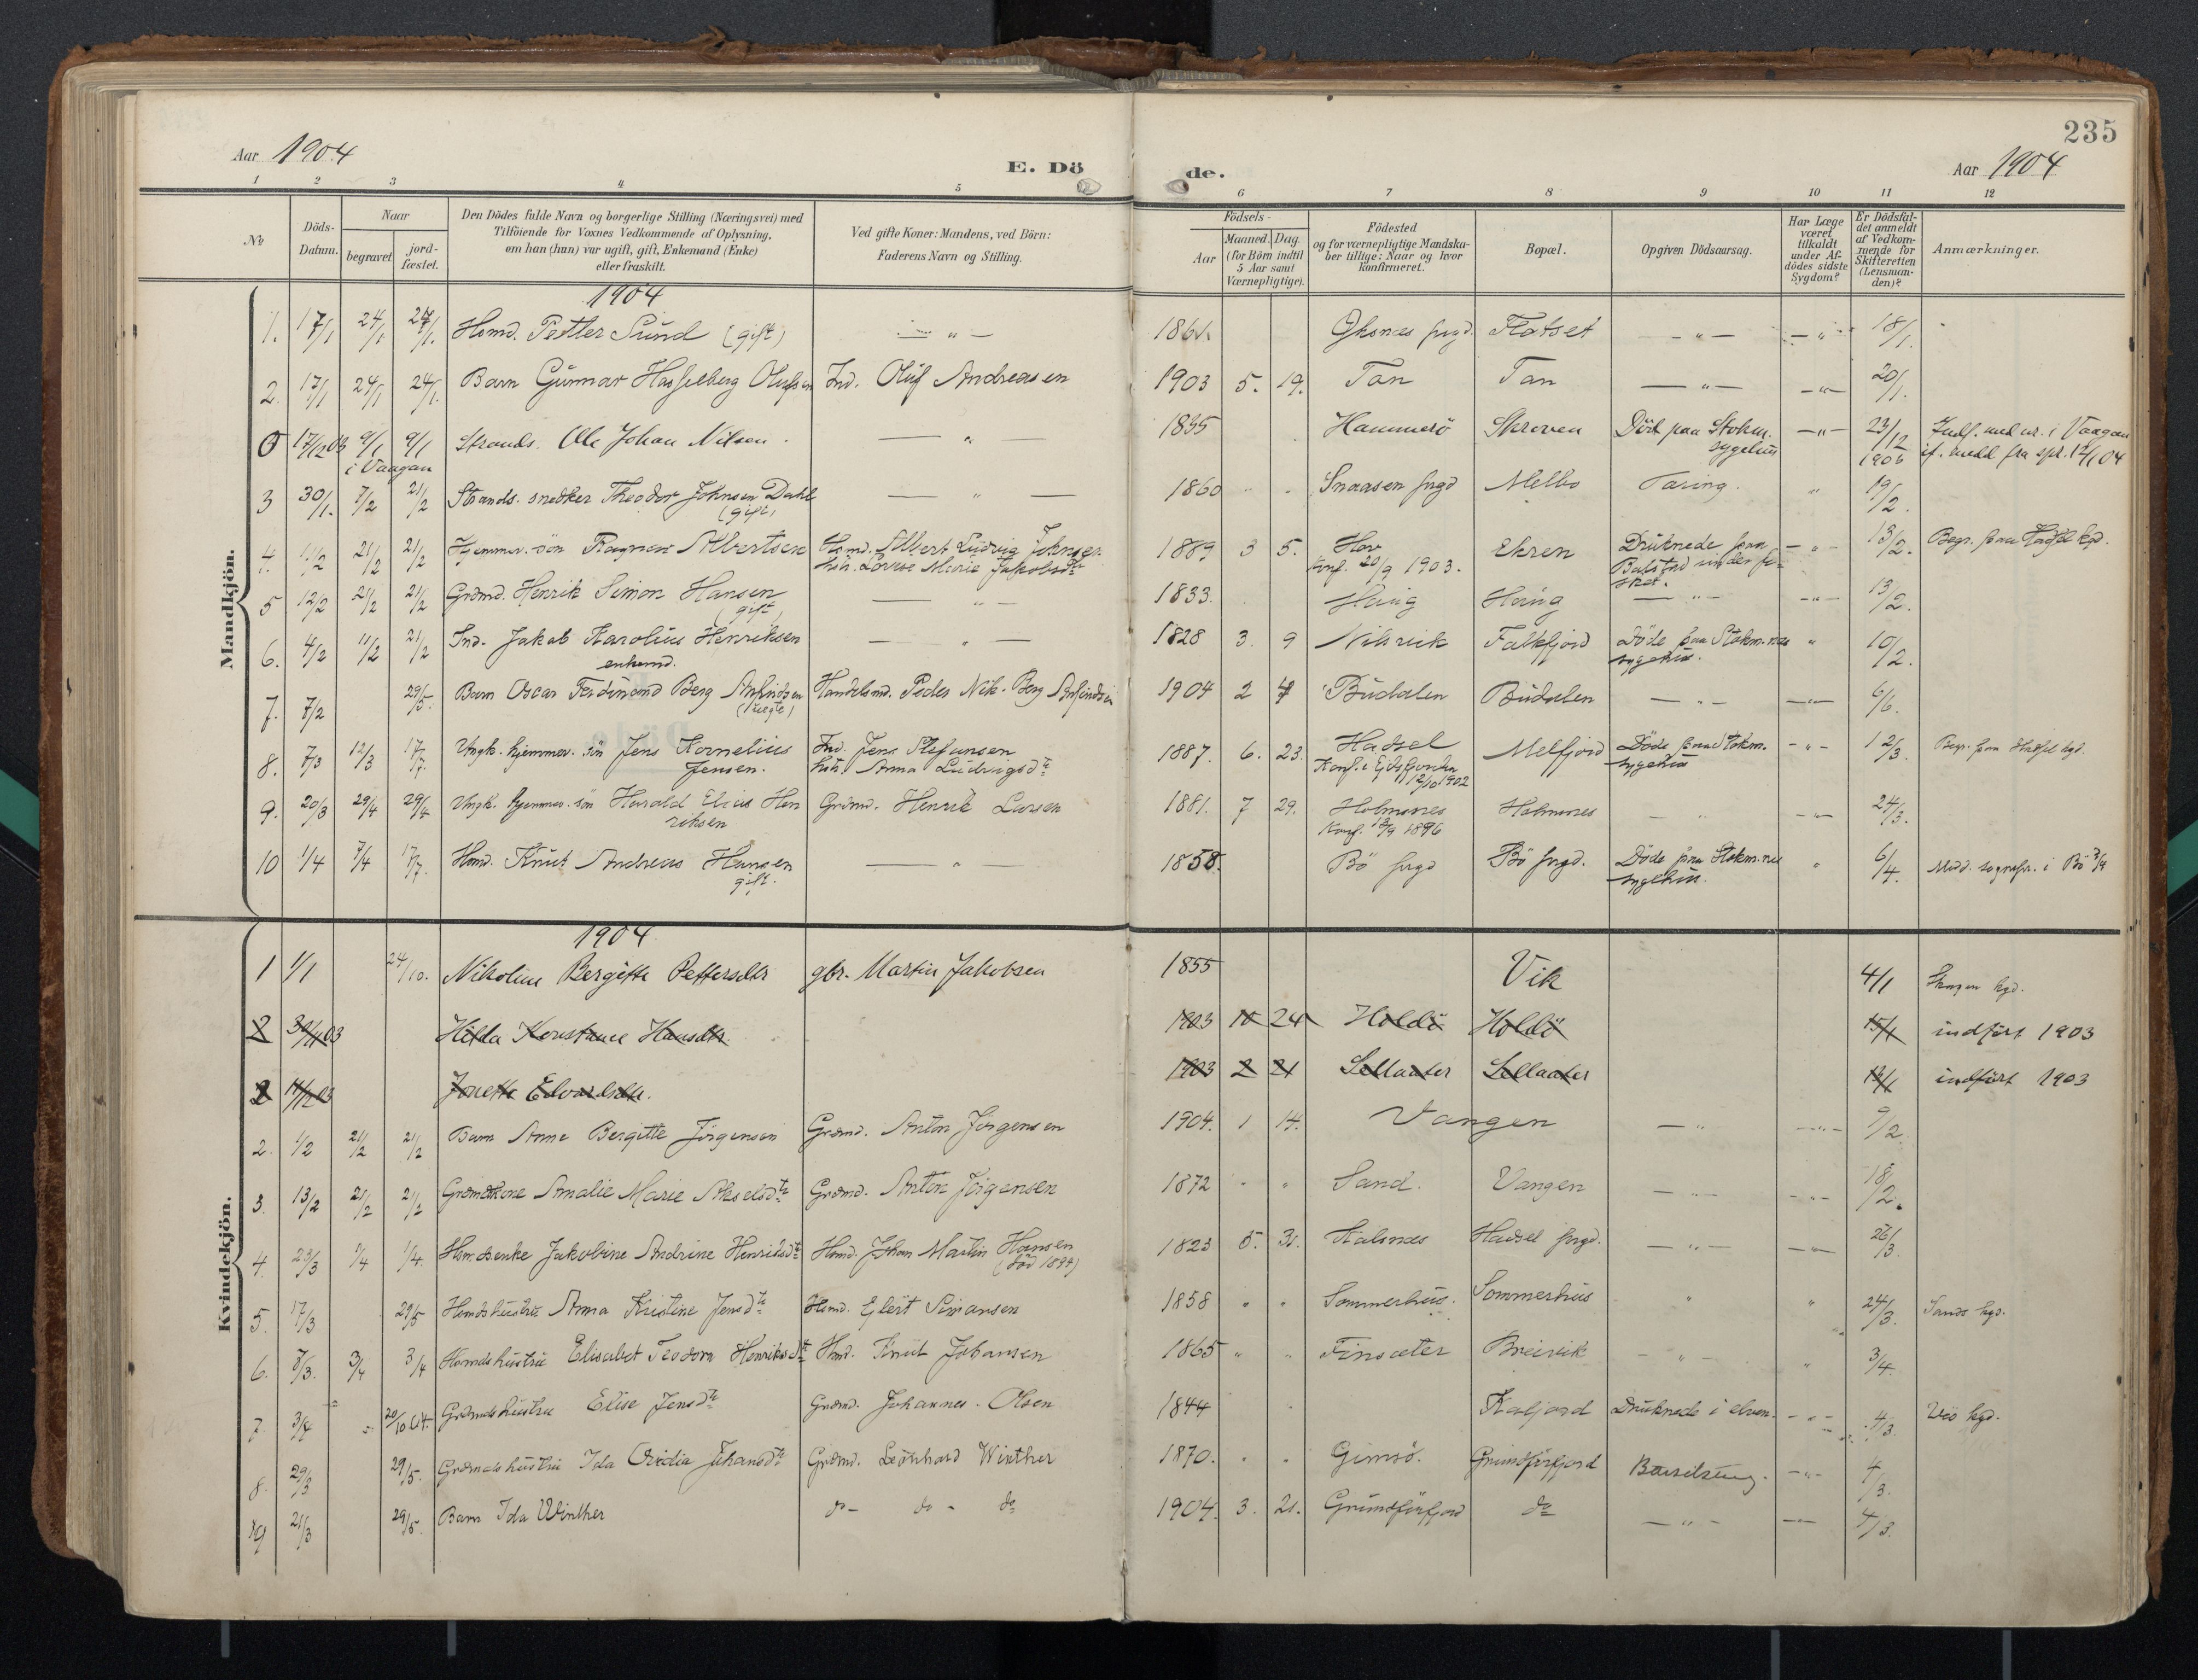 235
Aar 1904
E. Dö
de.
Aar 1904
1 2 3 4 5 6 7 8 9 10 11 12
No
Döds-
Datum.
Naar
begravet
jord-
fæstet.
Den Dödes fulde Navn og borgerlige Stilling (Næringsvei) med
Tilföiende for Voxnes Vedkommende af Oplysning,
om han (hun) var ugift, gift, Enkemand (Enke)
eller fraskilt.
Ved gifte Koner: Mandens, ved Börn:
Faderens Navn og Stilling.
Födsels-
Aar
Maaned. Dag.
(for Börn indtil
5 Aar samt
Værnepligtige).
Födested
og for værnepligtige Mandska-
ber tillige: Naar og hvor
konfirmeret.
Bopæl.
Opgiven Dödsaarsag.
Har Læge
været
tilkaldt
under Af-
dödes sidste
Sygdom?
Er Dödsfal-
det anmeldt
af Vedkom-
mende for
Skifteretten
(Lensman-
den)?
Anmærkninger.
Mandkjön.
1904
1. 17/1 24/1 24/1. Hsmd. Petter Sund (gift) — " — 1861. Øksnes prgd. Flatset — " — — " — 18/1.
2. 17/1 24/1 24/1. Barn Gunnar Hasselberg Olufsen Ind. Oluf Andreasen 1903 5. 19. Tan Tan — " — — " — 20/1.
0 17/12 03 9/1 9/1 Strands. Ole Johan Nilsen. — " 1835 Hammerö Skroven Död paa Stokm. — " — 23/12 Indf. med nr. i Vaagan
i Vaagan sygehus 1903 if. medd fra spr. 12/1 04
3 30/1. 7/2 21/2 Strands. snedker Theodor Johnsen Dahl — " — 1860 " " Snaasen prgd Melbo Tæring. " 19/2.
(gift)
4. 11/2 21/2 21/2 Hjemmev. sön Ragnar Albertsen Hsmd. Albert Ludvig Johnsen 1889 3 5. Hov Ekren Druknede paa — " — 13/2. Begr. paa Hadsel kgd.
hstr. Lovise Marie Jakobsdtr Konf. 20/9 1903. Balstad under fi-
sket.
5 12/2 21/2 21/2 Grdmd. Henrik Simon Hansen — " — 1833. Haug Haug — " — — " — 13/2.
(gift)
6. 4/2 11/2 21/2 Ind. Jakob Karolius Henriksen — " — 1828 3. 9 Falkfjord Döde paa Stokm.nes " 10/2.
enkemd. sygehus.
7. 7/2 29/5. Barn Oscar Ferdinand Berg Arfindsen Handelsmd. Peder Nik. Berg Arfindsen 1904 2 4 Budalen Budalen — " — — " — 6/6.
(uægte)
8. 7/3 12/3 17/7. Ungk. hjemmev. sön Jens Kornelius Ind. Jens Stefansen 1887. 6. 23. Hadsel Melfjord Döde paa Stokm. — " — 12/3. Begr. paa Hadsel kgd.
Jensen. hstr. Anna Ludvigsdtr Konf. i Eidsfjorden sygehus
12/10 1902
9. 20/3 29/4 29/4 Ungk. hjemmev. sön Harald Elius Hen Grdmd. Henrik Larsen 1881. 7 29. Holmsnes Holmsnes — " — " — 24/3.
riksen Konf. 1896
10 1/4 7/4 17/7. Hsmd. Knut Andreas Hansen — " — 1858. Bö prgd Bö prgd. Döde paa Stokm.nes " 6/4. Medd. sognepr. i Bö 7/4
gift. sygehus.
Kvindekjön.
1904
1 1/1 24/10. Nikoline Bergitte Pettersdtr gbr. Martin Jakobsen 1855 Vik 4/1 Skagen kgd.
2 30/11 03 Hilda Konstance Hansdtr. 1903 10 24 Holdö Holdö 15/1 indfört 1903
Jonette Edvardsdtr. 1903 2 21 Sellaater Sellaater indfört 1903
2. 1/2 21/2 21/2 Barn Anne Bergitte Jörgensen Grdmd. Anton Jörgensen 1904. 1 14. Vangen — " — " — 9/2.
3. 13/2 21/2 21/2 Grdmdkone Amalie Marie Akselsdtr Grdmd. Anton Jörgensen 1872 " " Sand. Vangen — " — — " — 18/2.
4. 23/3 1/4. Hsm.denke Jakobine Andrine Henriksdtr Hsmd. Johan Martin Hansen 1823 5. 31. Hadsel prgd. — " — — " — 26/3.
(död 1894)
5. 17/3 29/5 Hsmds hustru Anna Kristine Jensdtr Hsmd. Eilert Simonsen 1858 " " Sommerhus. Sommerhus " " 24/3. Sands kgd.
6. 8/3. 3/4 3/4 Hsmds hustru Elisabet Teodora Henriksdtr Hsmd. Knut Johansen 1865 " " Finsæter Breivik — " — " 3/4.
7. 3/4 20/10 04. Grdmds hustru Elise Jensdtr Grdmd. Johannes Olsen 1844 Kaljord Druknede i elven. — " — 4/3.
8. 29/3 29/5. Grdmds hustru Ida Ovidia Johansdtr Grdmd. Leonhard Winther 1870. " " Gimsö. Grundförfjord Barselseng. — " — 4/3.
9 21/3 29/5. Barn Ida Winther do do do 1904. 3. 21. Grundförfjord do — " — — " — 4/3.